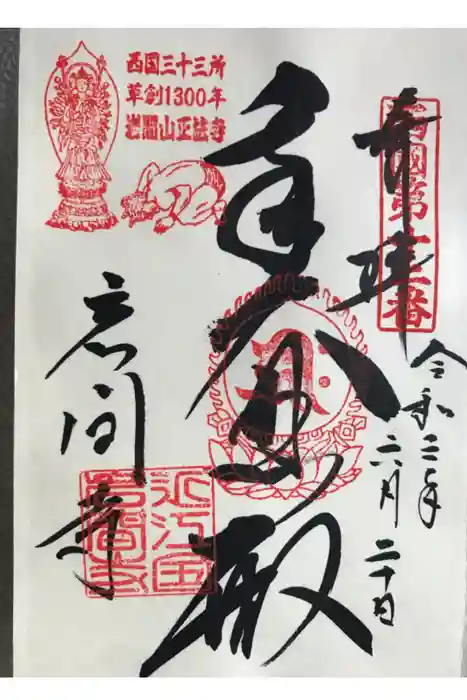 奉拝
西國第十二番
令和二年
六月二十日
大悲殿
岩間寺
近江國岩間寺
西国三十三所
草創1300年
岩間山正法寺